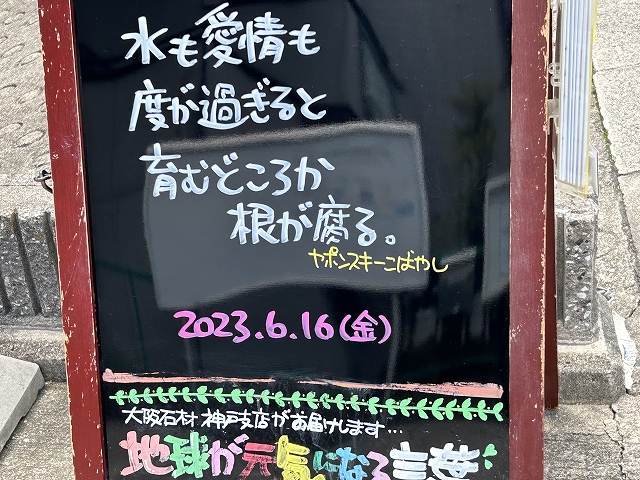 水も愛情も
度が過ぎると
育むどころか
根が腐る。
ヤポンスキーこばやし
2023.6.16(金)
大阪石材 神戸支店がお届けします…
地球が元気になる言葉